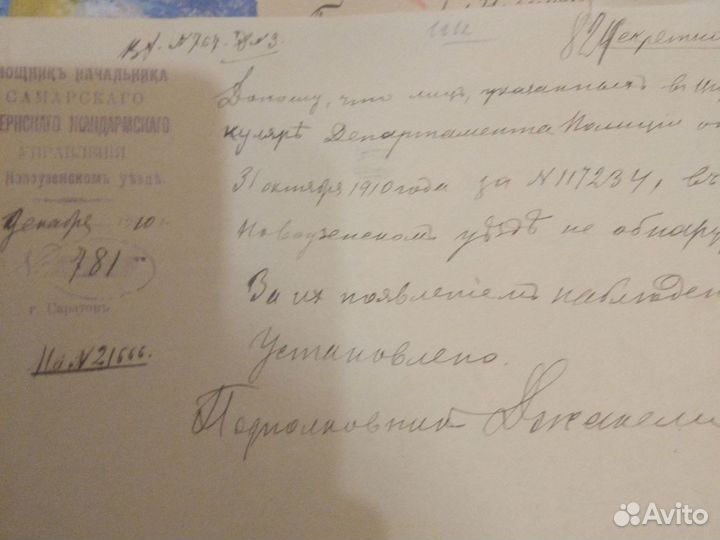 КА. № 764. 1912
Секретно
ПОМОЩНИКЪ НАЧАЛЬНИКА
САМАРСКАГО
ГУБЕРНСКАГО ЖАНДАРМСКАГО
УПРАВЛЕНІЯ
Новоузенскомъ уѣздѣ.
Декабря 1910
№ 781
г. Саратовъ
На № 21666.
Доношу, что лицъ, указанныхъ въ ци
кулярѣ Департамента Полиціи от
31 октября 1910 года за № 117234, въ
Новоузенскомъ уѣздѣ не обнару
За их появленіемъ наблюден
Установлено.
Подполковник Джакели
Avito